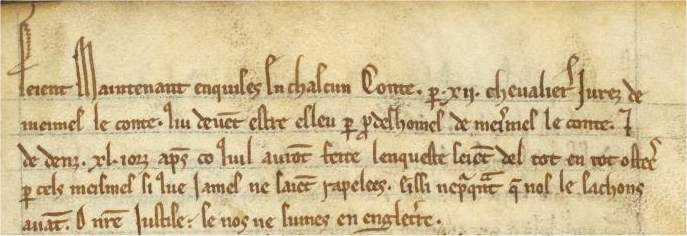 Seient Maintenant enquises En chascun Conte. p̱. xii. chevalierˢ Jurez de
meismes le conte. qui devent estre esleu p̱ p̱deshomes de meismes le conte. ⁊
de denz. xl. iorz apͬs co quil auront feite lenqueste seient del tot en tot ostees
p̱ cels meismes si que iames ne saient rapelees. Eissi neͥqͣnt q̄ nos le sachons
auāt. O nr̄e Justise: se nos ne sumes en engletr̄e.